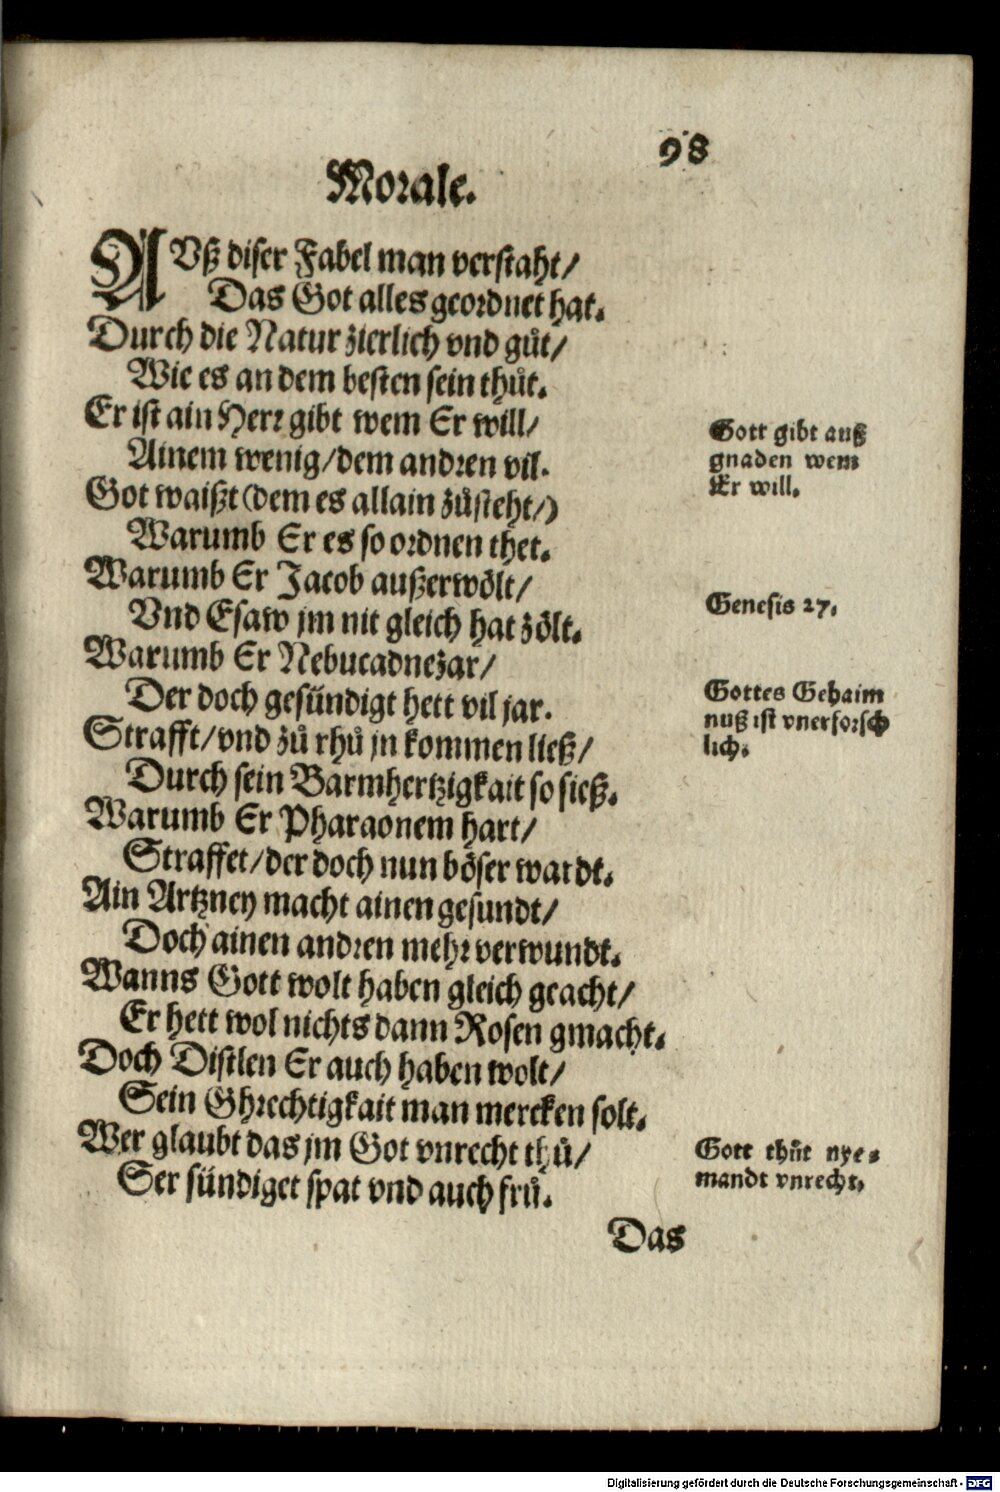 98
Morale.
AVß diser Fabel man verstaht/
Das Got alles geordnet hat.
Durch die Natur zierlich vnd guͤt/
Wie es an dem besten sein thuͦt.
Er ist ain Herr gibt wem Er will/
Ainem wenig/dem andren vil.
Got waißt (dem es allain zuͦsteht/)
Warumb Er es so ordnen thet.
Warumb Er Jacob außerwoͤlt/
Vnd Esaw jm nit gleich hat zoͤlt.
Warumb Er Nebucadnezar/
Der doch gesündigt hett vil jar.
Strafft/vnd zuͦ rhuͦ jn kommen ließ/
Durch sein Barmhertzigkait so sieß.
Warumb Er Pharaonem hart/
Straffet/der doch nun boͤser wardt.
Ain Artzney macht ainen gesundt/
Doch ainen andren mehr verwundt.
Wanns Gott wolt haben gleich geacht/
Er hett wol nichts dann Rosen gmacht.
Doch Distlen Er auch haben wolt/
Sein Ghrechtigkait man mercken solt.
Wer glaubt das jm Got vnrecht thuͤ/
Ser sündiget spat vnd auch fruͤ.
Das
Gott gibt auß
gnaden wem
Er will.
Genesis 27.
Gottes Gehaim
nuß ist vnerforsch
lich.
Gott thuͦt nye-
mandt vnrecht.
Digitalisierung gefördert durch die Deutsche Forschungsgemeinschaft - DFG